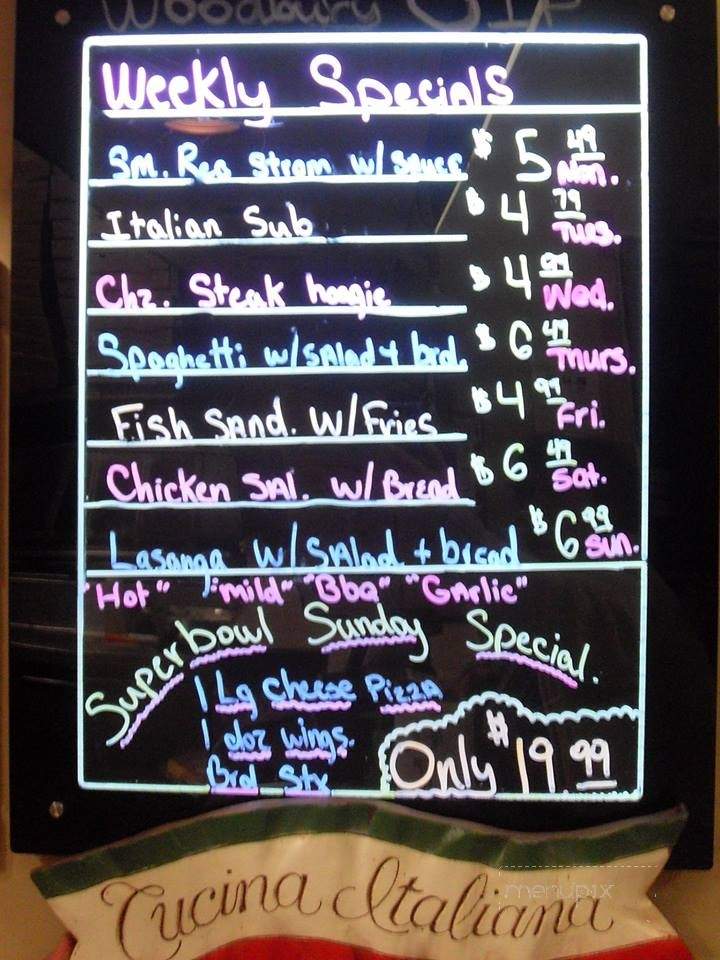 Woodbury
Weekly Specials
Sm. Reg Strom w/ Sauce $ 5 49 Mon.
Italian Sub $ 4 79 Tues.
Chz. Steak hoagie $ 4 99 Wed.
Spaghetti w/ SAlad + brd. $ 6 49 Thurs.
Fish SAnd. W/Fries $ 4 99 Fri.
Chicken SAl. w/ BreAd $ 6 49 Sat.
Lasanga w/ SAlad + bread $ 6 99 Sun.
"Hot" "mild" "Bbq" "GArlic"
Superbowl Sunday Special.
1 Lg cheese PizzA
1 doz wings.
Brd Stx
Only $ 19 99
Cucina Italiana
menupix